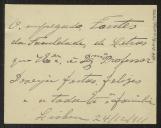 O empregado Fontes
da Faculdade, de Letras
que Exª. a Exmo Professor
Deseja festas felizes
e a toda a Exª família
Lisboa 24/12/